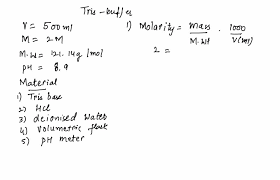 Tris-buffer
V = 500ml
M = 2M
M.W = 121.14g/mol
pH = 8.9
Material
1) Tris base
2) Hcl
3) deionised water
4) volumetric flask
5) pH meter
1) Molarity = mass / M.Wt . 1000 / V(ml)
2 =